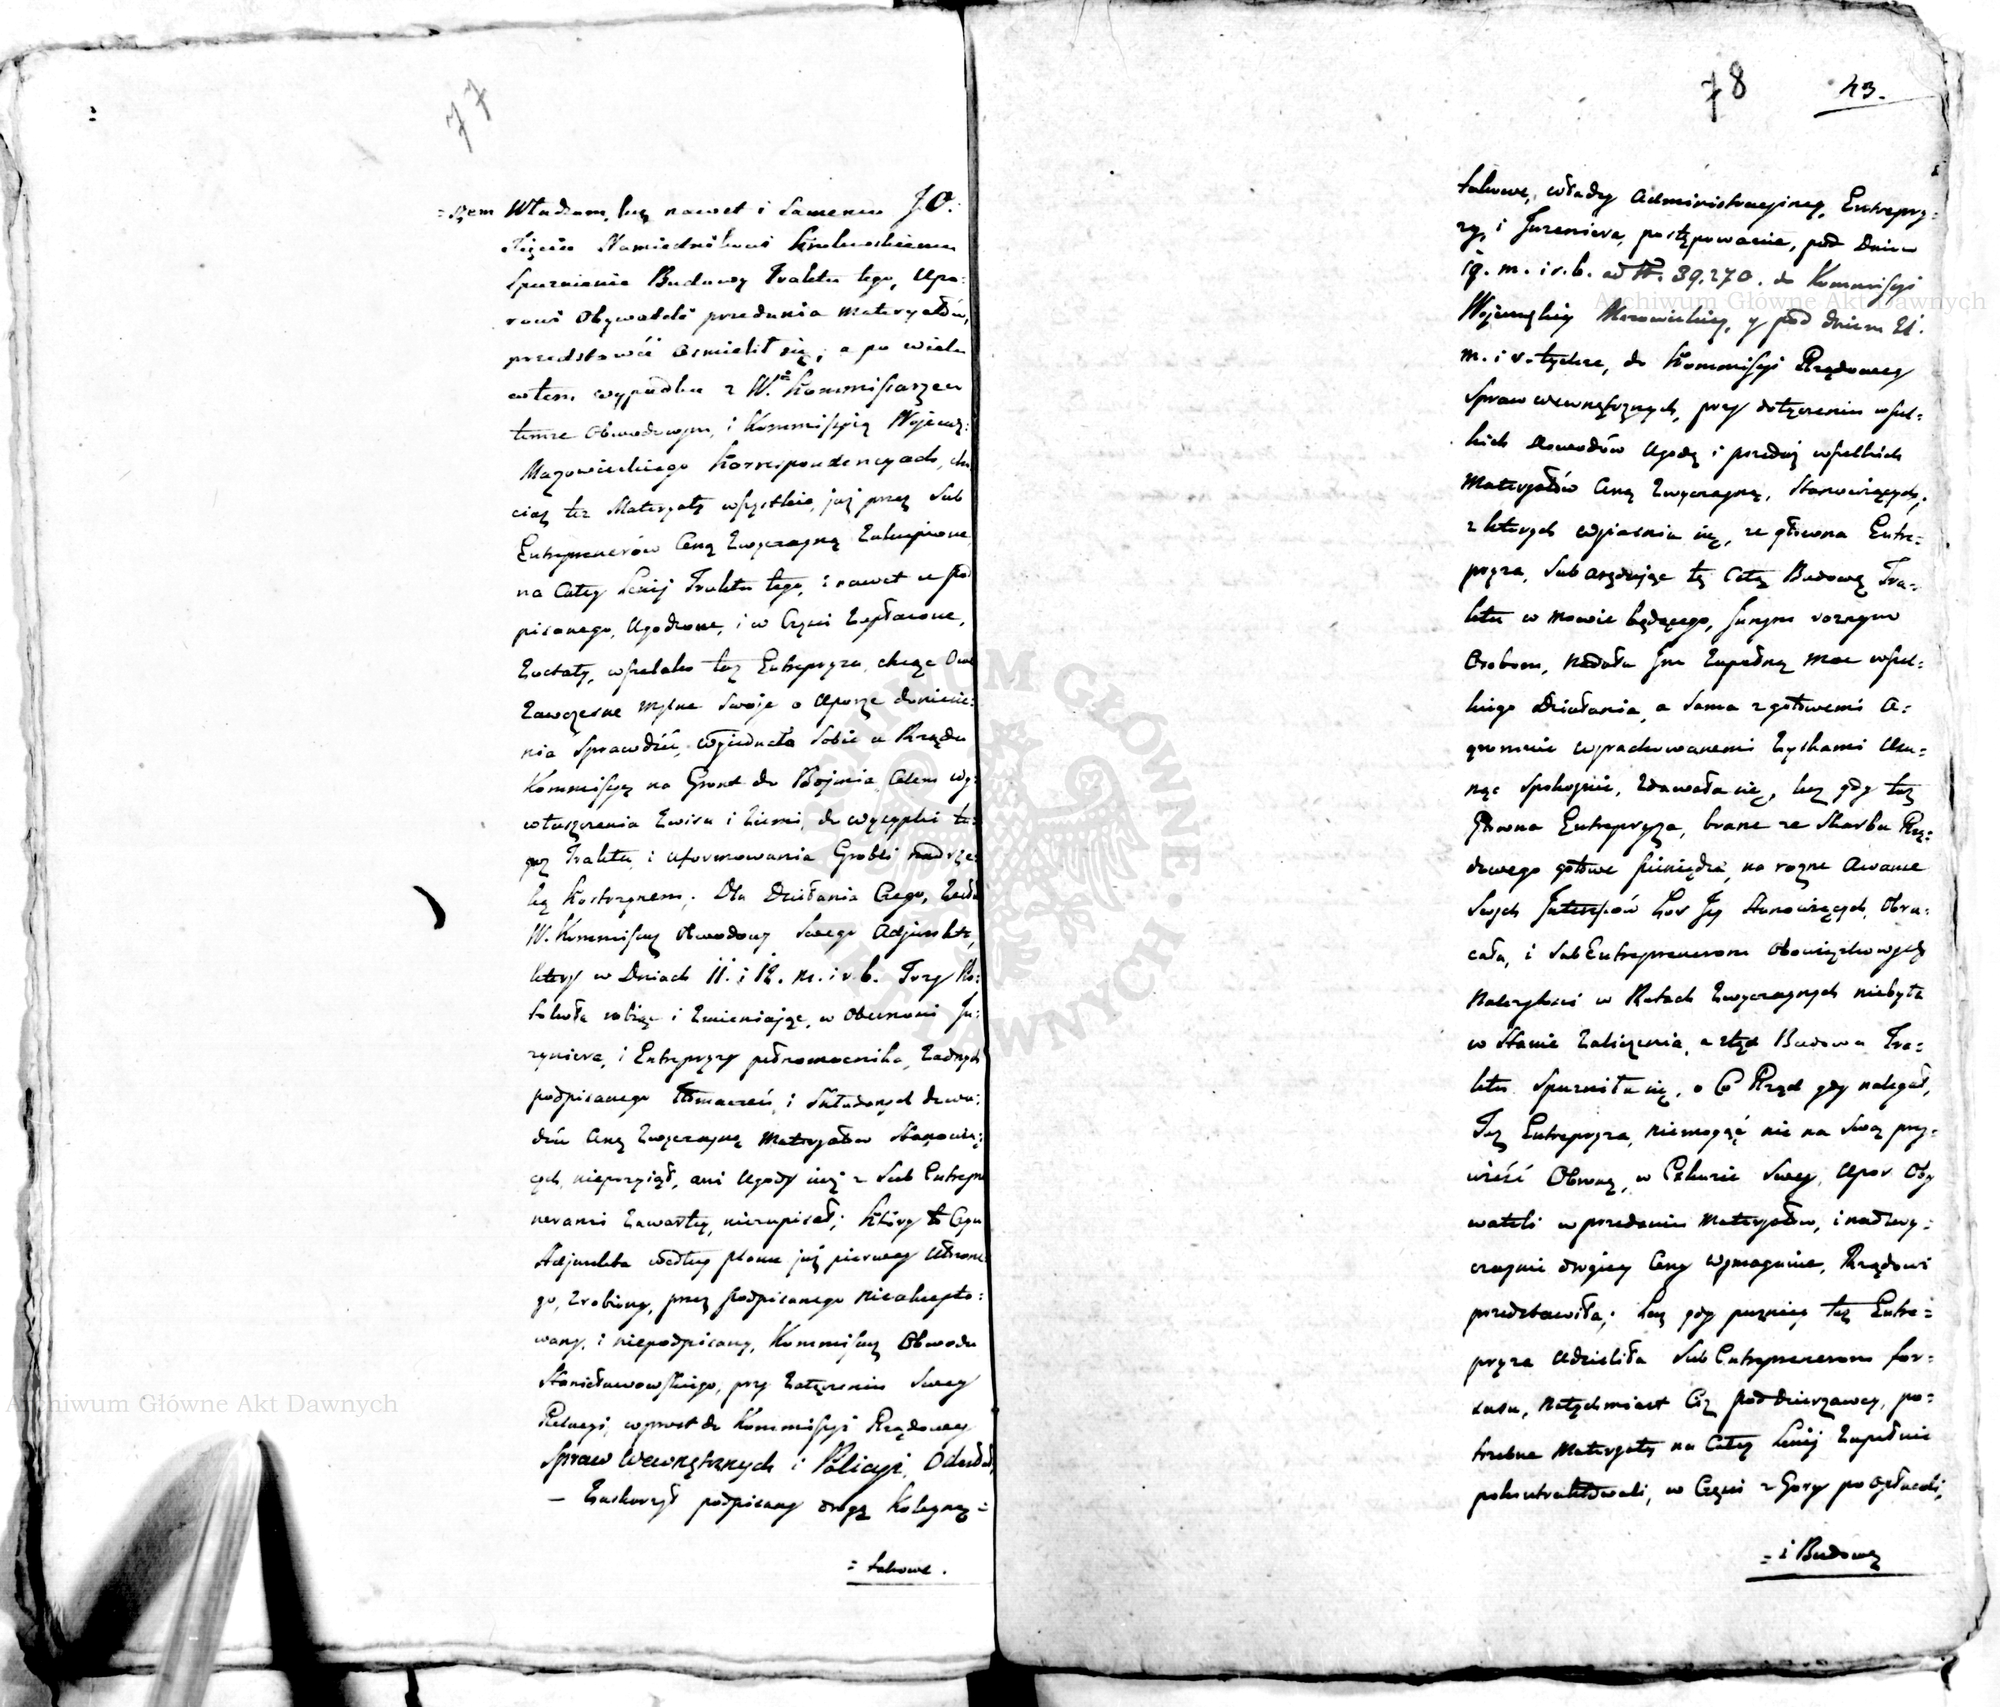 77
=szem Władzom, lecz nawet i Samemu J.O.
Xięciu Namiestnikowi Krolewskiemu
Spuznienie Budowy Traktu tego, Upo=
rowi Obywateli przedania Materyałów,
przedstawić osmielił się; a po wielu
w tem wypadku z W. Kommissarzem
temze Obwodowym, i Kommissyią Wojewz:
Mazowieckiego Korrespondencyach, cho
ciaż też Materyały wszystkie, już przez Sub
Entreprenerów Ceną Zwyczayną Zakupione
na Całey Linij Traktu tego, i nawet u Pod
pisanego, Ugodzone, i w Części Zapłacone,
Zostały, wszelako taż Entrepryza, chcąc Owe
Zawczesne mylne Swoje o Uporze doniesie=
nia Sprawdzić, wyiednała Sobie u Rządu
Kommissyą na Grunt do Bojmia Celem wy=
właszczenia Zwiru i Ziemi, do wysypki te=
goż Traktu, i uformowania Grobli nad rze=
ką Kostrzynem; Dla Działania Czego, Zesłał
W. Kommissarz Obwodowy Swego Adjunkta,
który w Dniach 11. i 12. m. i r. b. Trzy Pro=
tokuła robiąc i Zmieniając, w Obecnosci In=
zyniera, i Entrepryzy pełnomocnika, Zadnych
podpisanego tłomaczeń, i Składanych dowo=
dów Cenę Zwyczayną Materyałów Stanowią=
cych, nieprzyiął, ani Ugody iuż z Sub Entrepre
nerami Zawartey, niezapisał; Który to Czyn
Adjunkta według planu już pierwey Utwone=
go, Zrobiony, przez podpisanego nieakcepto=
wany, i niepodpisany, Kommissarz Obwodu
Stanisławowskiego, przy Załączeniu Swey
Relacyi, wprost do Kommissyi Rządowey
Spraw Wewnętrznych i Policyi, Odesłał,
— Zaskarzył podpisany drogą Kolegną=
= takowe.
78
43.
takowe, władzy Administracyiney, Entrepry=
zy, i Inzeniera, postępowanie, pod Dniem
19. m. i r. b. ad N. 39,270. do Kommissyi
Wojewzkiey Mazowieckiey, y pod dniem 21.
m. i r. tychze, do Kommissyi Rządowey
Spraw wewnętrznych, przy dołączeniu wszel=
kich dowodów Ugody i przedaży wszelkich
Materyałów Ceną Zwyczayną, Stanowiących,
z ktorych wyiasnia się, ze głowna Entre=
pryza, Subarędując tę Całą Budowę Tra=
ktu w mowie będącego, Innym roznym
Osobom, Nadała Im Zupełną moc wszel=
kiego Działania, a Sama z gotowemi O=
gromnie wyrachowanemi Zyskami Usu=
nąc Spokoynie, Zdawała się, lecz gdy taż
Głowna Entrepryza, brane ze Skarbu Rzą=
dowego gotowe pieniądze, na rozne Awanse
Swych Interesów Los Jey Stanowiących, Obra=
cała, i SubEntreprenerom Obowiązkowych
Należytosci w Ratach Zwyczaynych niebyła
w Stanie Zaliczenia, a ztąd Budowa Tra=
ktu Spuzniła się, o Co Rząd gdy nalegał,
Taż Entrepryza, niemogąc nic na Swą przy=
wieść Obronę, w Exkuzie Swey, Upor Oby
wateli w przedaniu Materyałów, i nadzwy=
czaynie drogiey Ceny wymaganie, Rządowi
przedstawiła; Lecz gdy puzniey taż Entre=
pryza Udzieliła SubEntreprenerom for=
szusu, Natychmiast Ciż poddzierzawcy, po=
trzebne Materyały na Całey Linij Zupełnie
pokontraktowali, w Części z Gory po opłacali,
= i Budowę